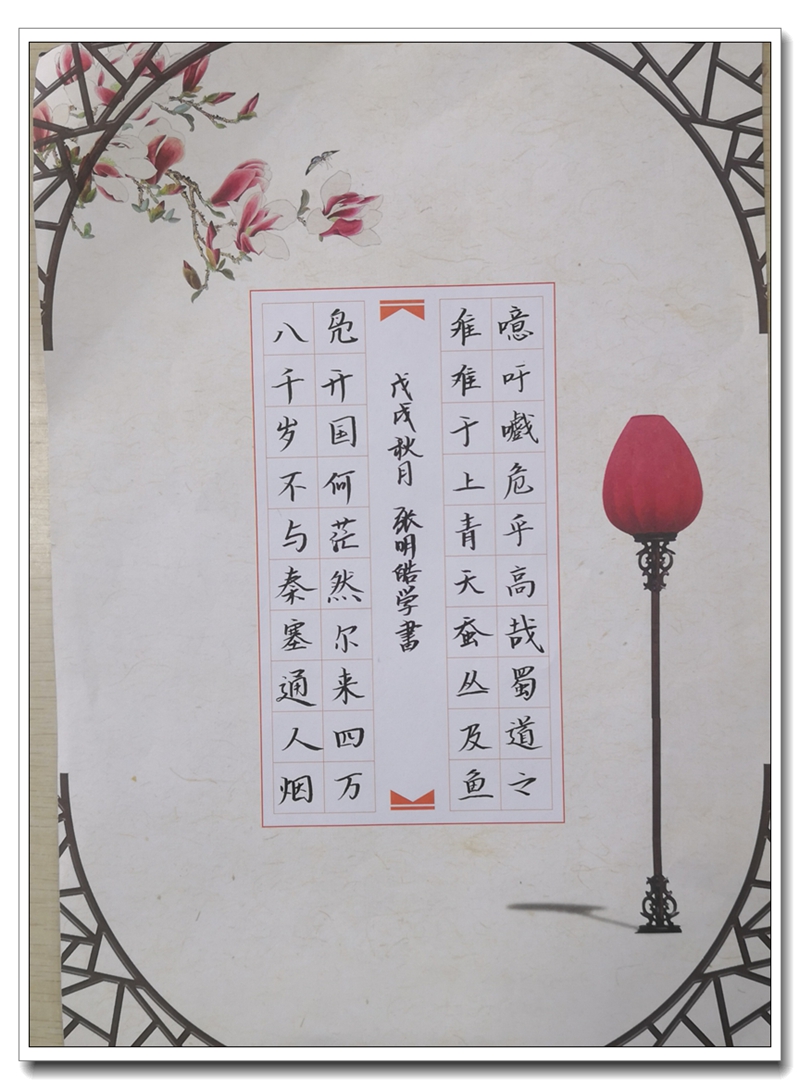 噫吁嚱危乎高哉蜀道之
难难于上青天蚕丛及鱼
戊戌秋月 张明皓学书
凫开国何茫然尔来四万
八千岁不与秦塞通人烟